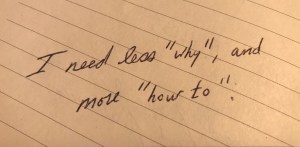 I need less "why", and
more "how to".